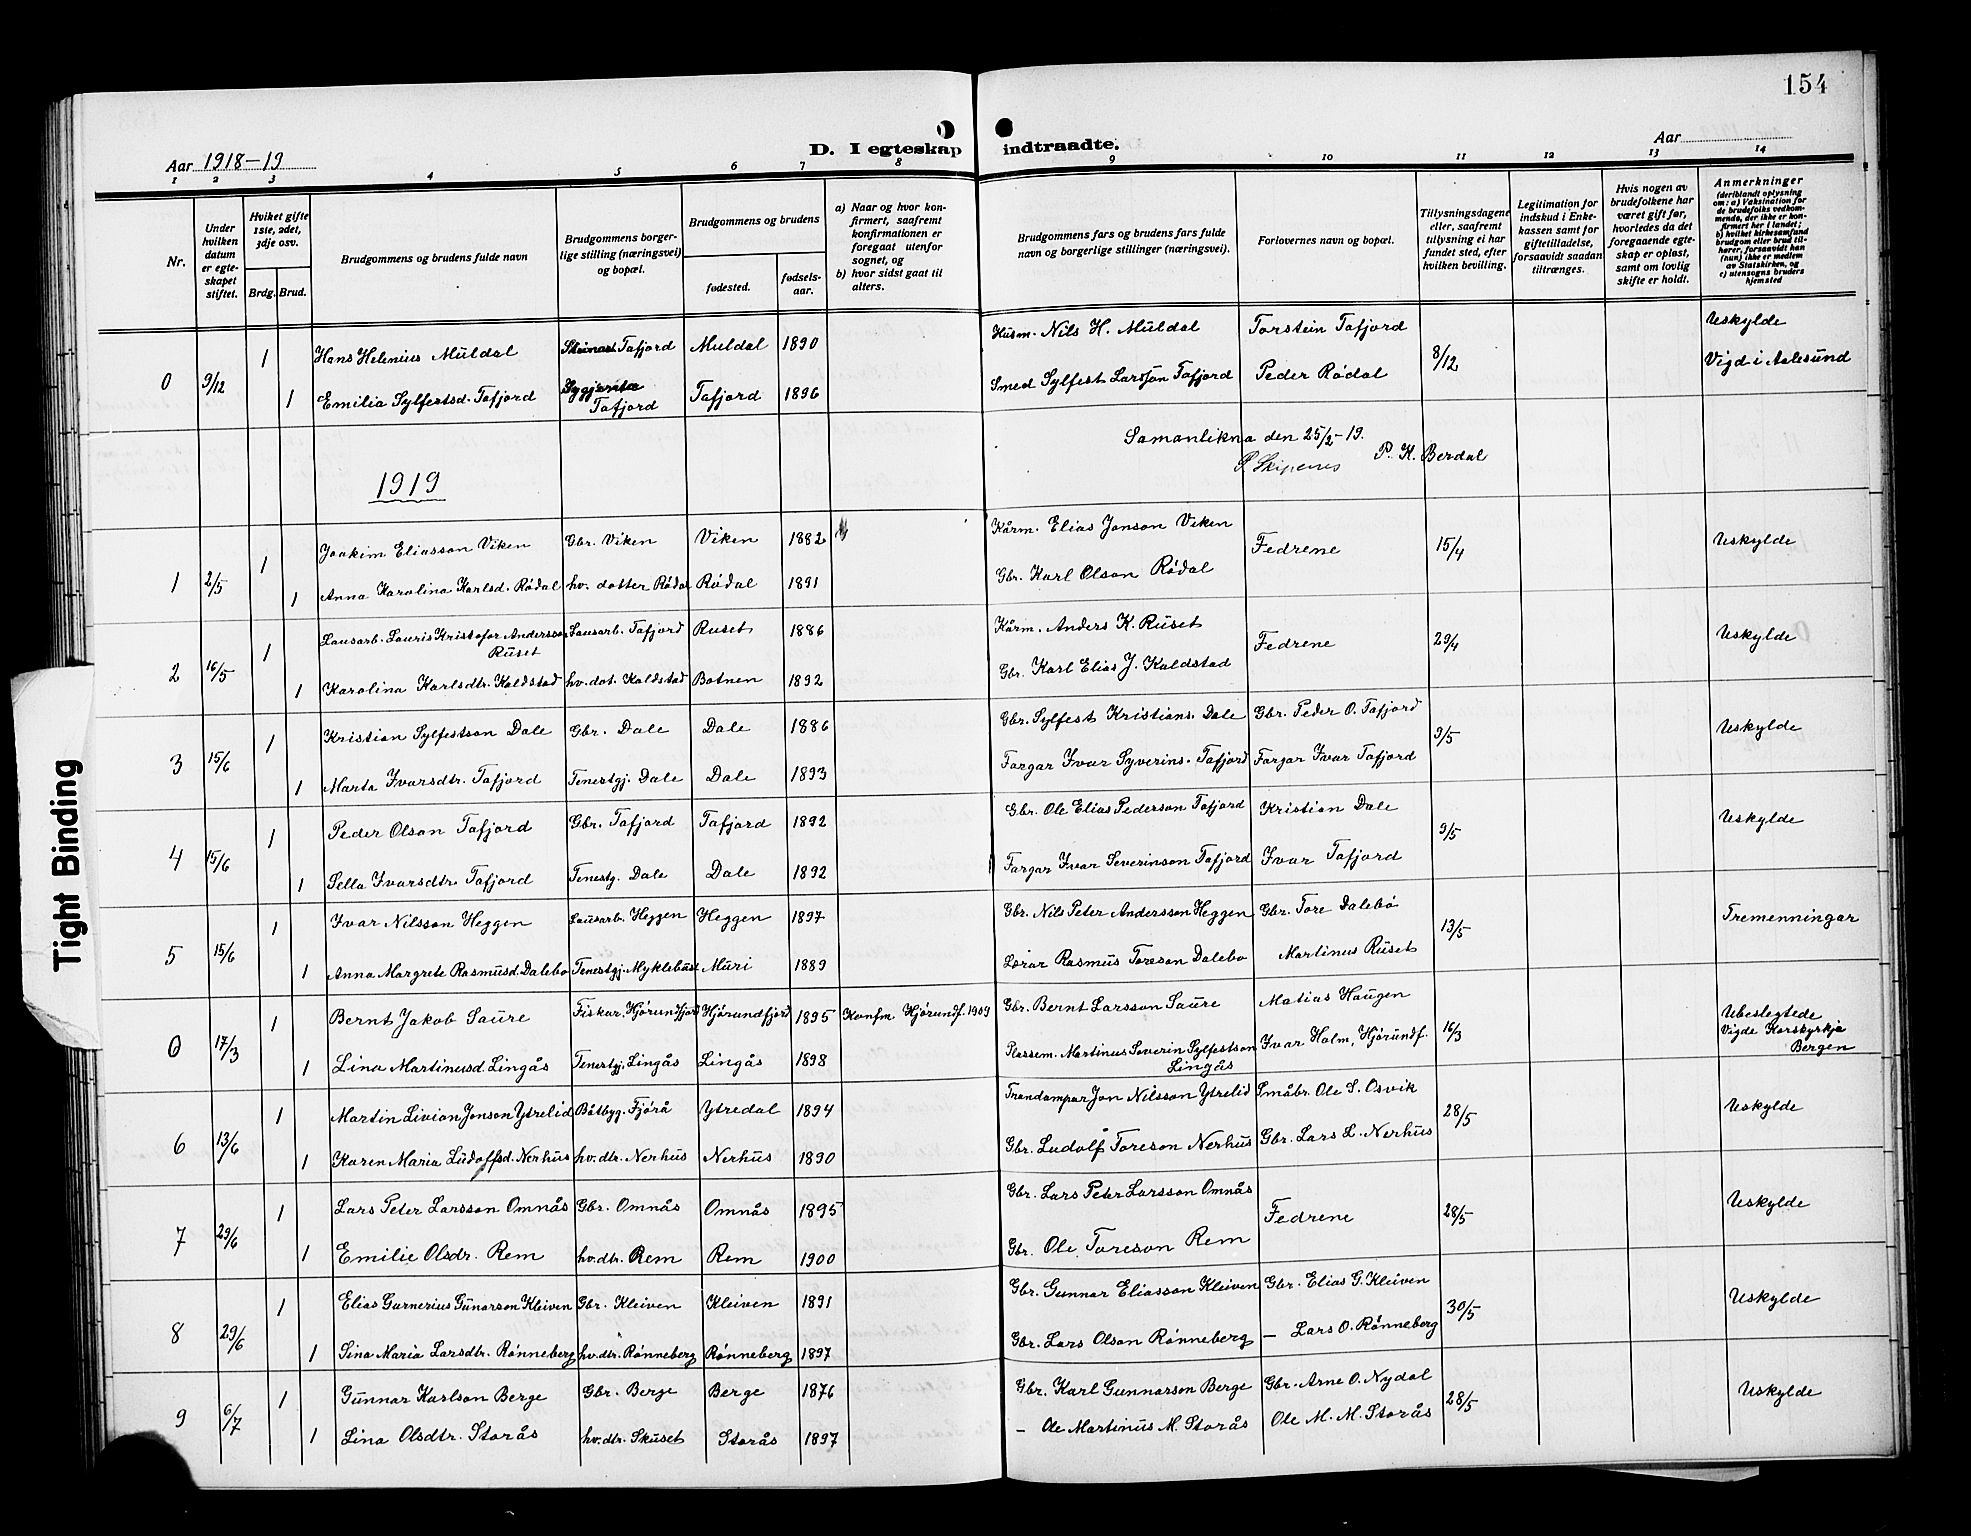 154
D. I egteskap indtraadte.
Aar 1918-19
Aar
1 2 3 4 5 6 7 8 9 10 11 12 13 14
Nr.
Under hvilken datum er egteskapet stiftet.
Hviket gifte 1ste, 2det, 3dje osv.
Brdg. Brud.
Brudgommens og brudens fulde navn
Brudgommens borgerlige stilling (næringsvei) og bopæl.
Brudgommens og brudens
fødested.
fødselsaar.
a) Naar og hvor konfirmert, saafremt konfirmationen er foregaat utenfor sognet, og
b) hvor sidst gaat til alters.
Brudgommens fars og brudens fars fulde navn og borgerlige stillinger (næringsvei).
Forlovernes navn og bopæl.
Tillysningsdagene eller, saafremt tillysning ei har fundet sted, efter hvilken bevilling.
Legitimation for indskud i Enkekassen samt for giftetilladelse, forsaavidt saadan tiltrænges.
Hvis nogen av brudefolkene har været gift før, hvorledes da det foregaaende egteskap er opløst, samt om lovlig skifte er holdt.
Anmerkninger (deriblandt oplysning om: a) Vaksination for de brudefolks vedkommende, der ikke er konfirmert her i landet; b) hvilket kirkesamfund brudgom eller brud tilhører, forsaavidt han (hun) ikke er medlem av Statskirken, og c) utensogns bruders hjemsted
0 9/12 1 Hans Helenius Muldal Tafjord Muldal 1890 Husm. Nils H. Muldal Torstein Tafjord 8/12 Uskylde
1 Emilia Sylfestsd. Tafjord Tafjord Tafjord 1896 Smed Sylfest Larsson Tafjord Peder Rødal Vigd i Aalesund
Samanlikna den 25/2-19.
P. Skipenes P. K. Berdal
1919
1 2/5 1 Joakim Eliasson Viken Gbr. Viken Viken 1882 Kårm. Elias Jonson Viken Fedrene 15/4 Uskylde
1 Anna Karolina Karlsd. Rødal hv. dotter Rødal Rødal 1891 Gbr. Karl Olson Rødal
2 16/5 1 Lausarb. Lauris Kristofor Andersson Ruset Lausarb. Tafjord Ruset 1886 Kårm. Anders K. Ruset Fedrene 29/4 Uskylde
1 Karolina Karlsdtr. Kaldstad hv. dot. Kaldstad Botnen 1892 Gbr. Karl Elias J. Kaldstad
3 15/6 1 Kristian Sylfestson Dale Gbr. Dale Dale 1886 Gbr. Sylfest Kristians. Dale Gbr. Peder O. Tafjord 9/5 Uskylde
1 Marta Ivarsdtr. Tafjord Tenestgj. Dale Dale 1893 Fargar Ivar Syverins. Tafjord Fargar Ivar Tafjord
4 15/6 1 Peder Olson Tafjord Gbr. Tafjord Tafjord 1892 Gbr. Ole Elias Pederson Tafjord Kristian Dale 9/5 Uskylde
1 Sella Ivarsdtr. Tafjord Tenestg. Dale Dale 1892 Fargar Ivar Severinson Tafjord Ivar Tafjord
5 15/6 1 Ivar Nilsson Heggen Lausarb. Heggen Heggen 1897 Gbr. Nils Peter Andersson Heggen Gbr. Tore Dalebø 13/5 Tremenningar
1 Anna Margrete Rasmusd. Dalebø Tenestgj. Myklebust Muri 1889 Lærar Rasmus Toreson Dalebø Martinus Ruset
0 17/3 1 Bernt Jakob Saure Fiskar, Hjørundfjord Hjørundfjord 1895 Konfm Hjørundf. 1909 Gbr. Bernt Larsson Saure Matias Haugen 16/3 Ubeslegtede Vigde Korskyrkja Bergen
1 Lina Martinusd. Lingås Tenestgj. Lingås Lingås 1898 Plassem. Martinus Severin Sylfestson Lingås Ivar Holm, Hjørundf.
6 13/6 1 Martin Livion Jonson Ytrelid Båtbyg. Fjørå Ytredal 1894 Trandampar Jon Nilsson Ytrelid Småbr. Ole S. Osvik 28/5 Uskylde
1 Karen Maria Ludolfsd. Nerhus hv. dtr. Nerhus Nerhus 1890 Gbr. Ludolf Toreson Nerhus Gbr. Lars L. Nerhus
7 29/6 1 Lars Peter Larsson Omnås Gbr. Omnås Omnås 1895 Gbr. Lars Peter Larsson Omnås Fedrene 28/5 Uskylde
1 Emilie Olsdr. Rem hv. dtr. Rem Rem 1900 Gbr. Ole Toreson Rem
8 29/6 1 Elias Gurnerius Gunarson Kleiven Gbr. Kleiven Kleiven 1891 Gbr. Gunnar Eliasson Kleiven Gbr. Elias G. Kleiven 30/5 Uskylde
1 Sina Maria Larsdtr. Rønneberg hv. dtr. Rønneberg Rønneberg 1897 Gbr. Lars Olson Rønneberg – Lars O. Rønneberg
9 6/7 1 Gunnar Karlson Berge Gbr. Berge Berge 1876 Gbr. Karl Gunnarson Berge Gbr. Arne O. Nydal 28/5 Uskylde
1 Lina Olsdtr. Storås hv. dtr. Skuset Storås 1897 – Ole Martinus M. Storås Ole M. M. Storås
Tight Binding